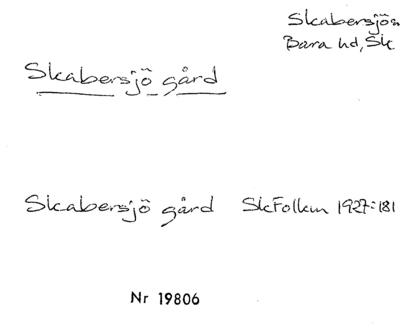 Skabersjö sn
Bara hd, Sk
Skabersjö gård
Skabersjö gård SkFolkm 1927:181
Nr 19806